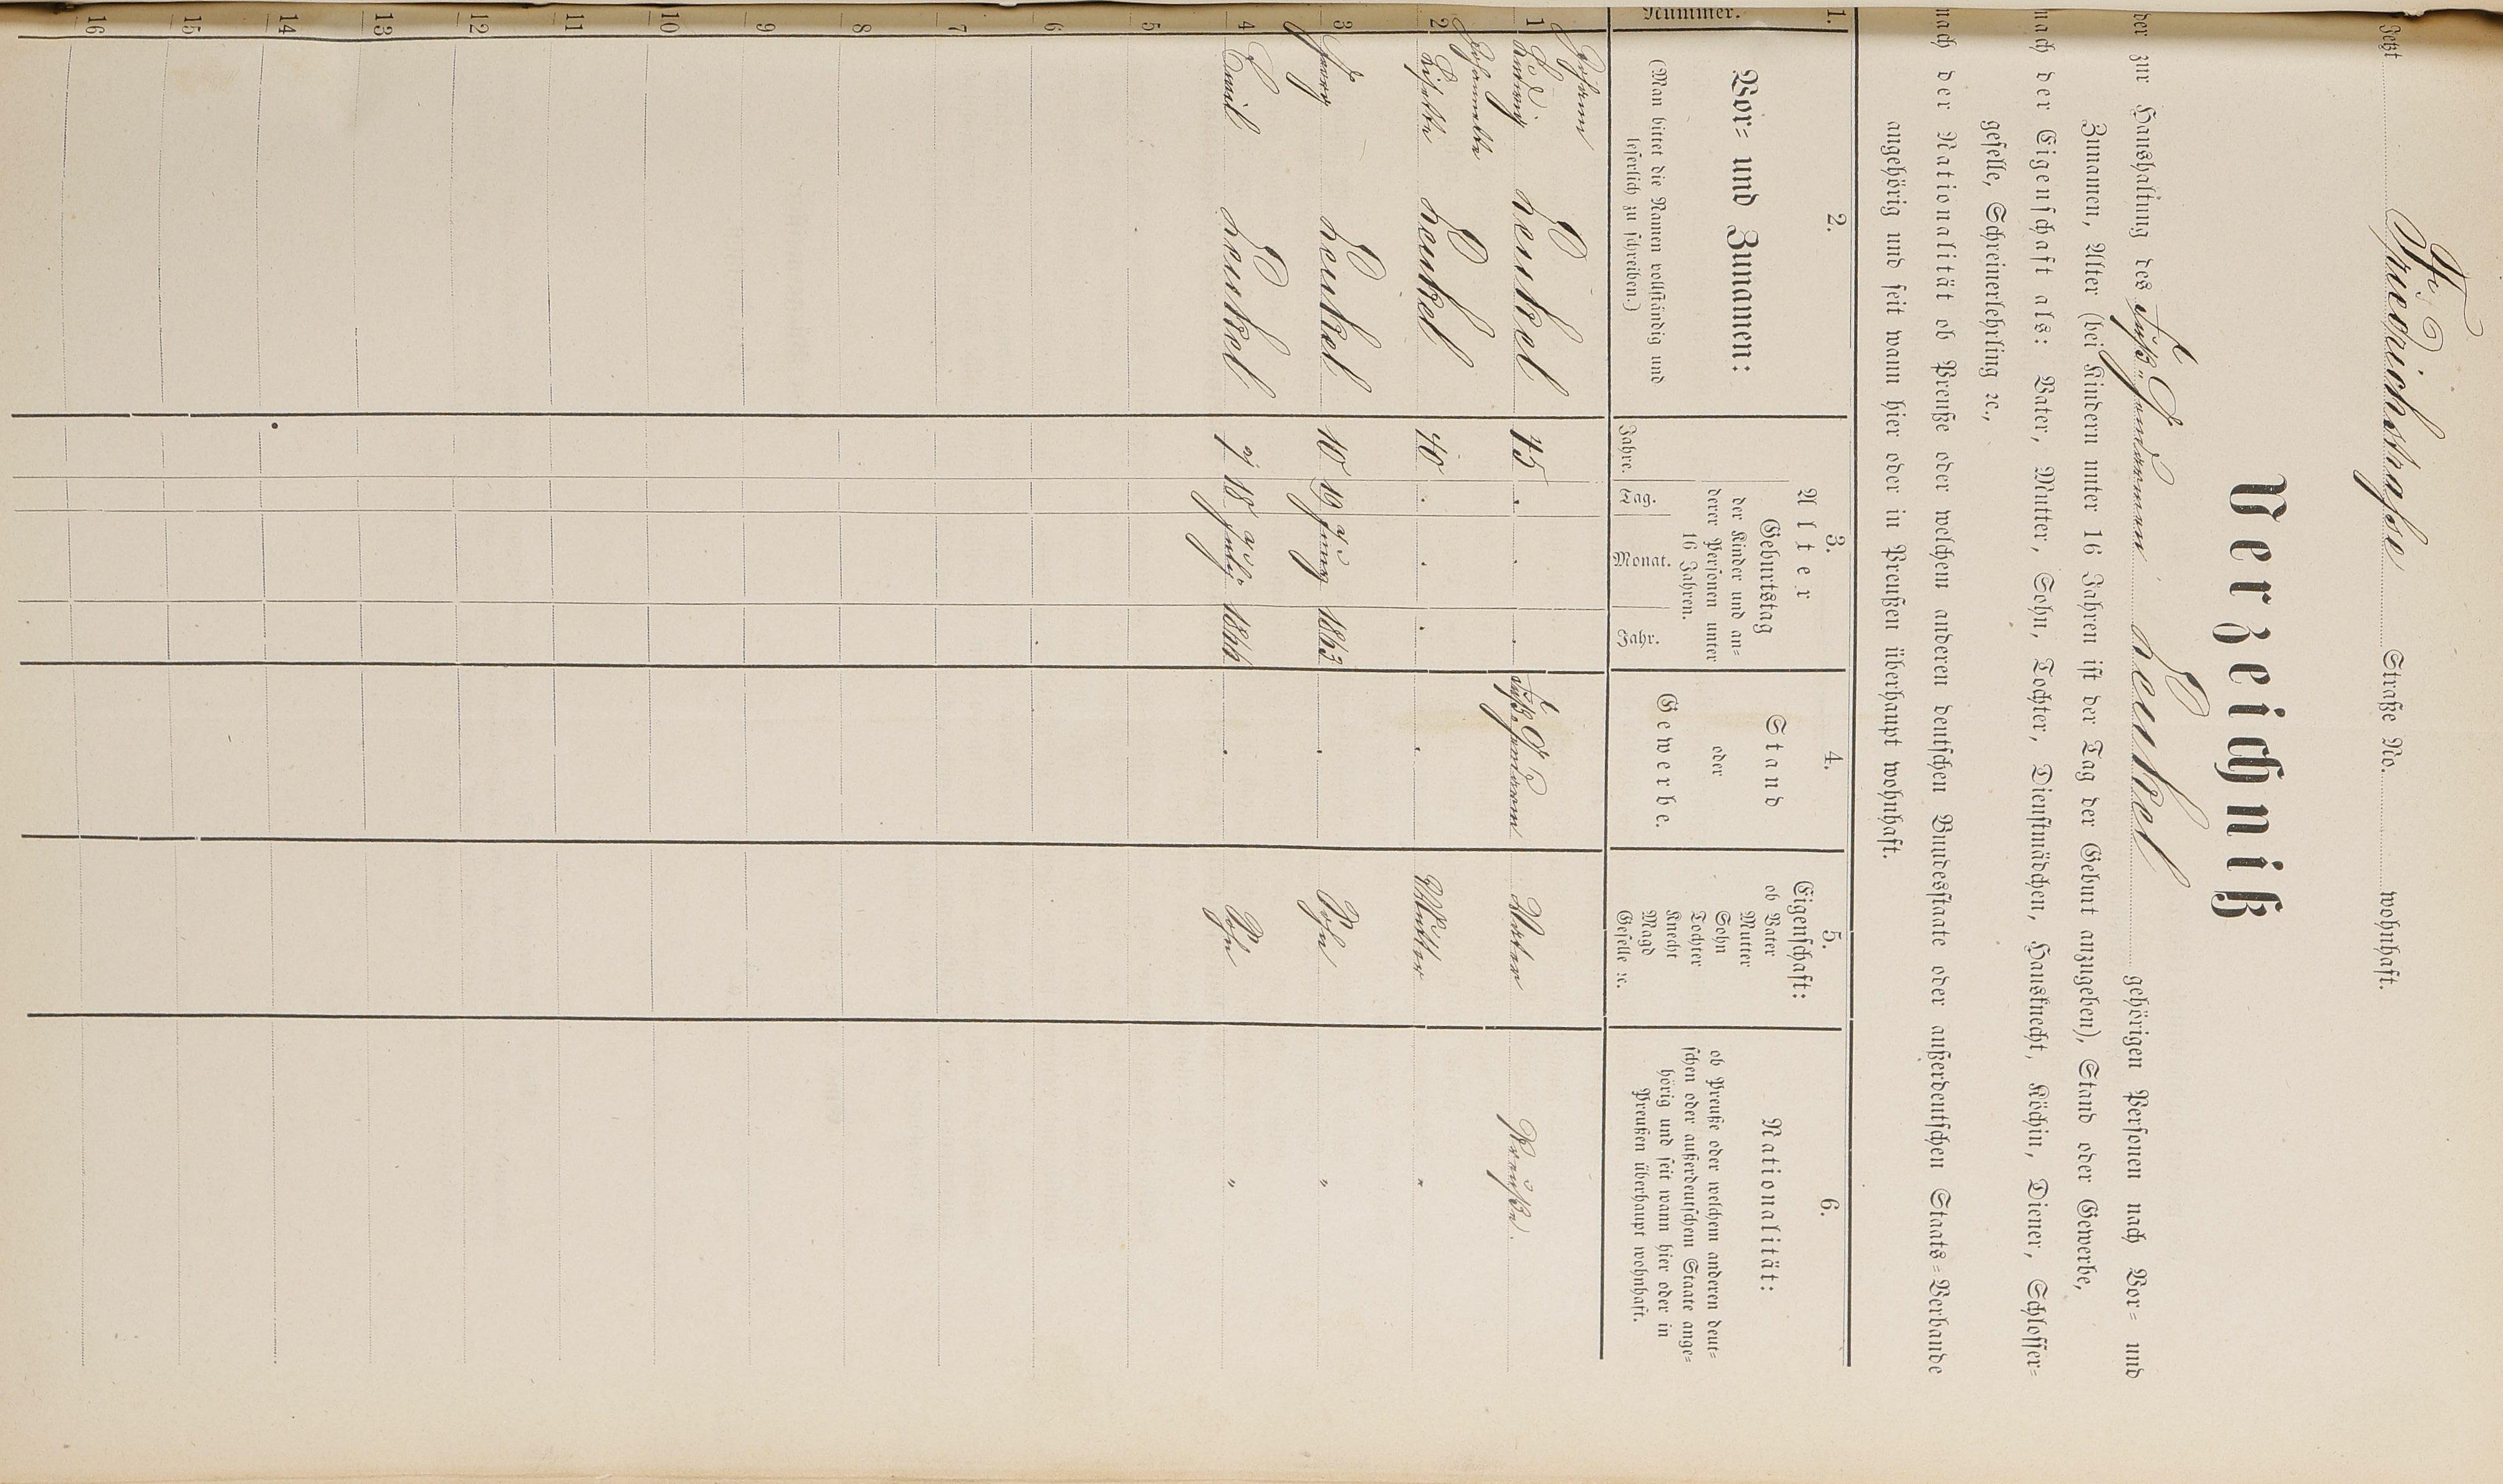 Jetzt Friedrichstraße Straße No. wohnhaft.
Verzeichniß
der zur Haushaltung des Fuß-Gendarmen Henkel gehörigen Personen nach Vor= und
Zunamen, Alter (bei Kindern unter 16 Jahren ist der Tag der Geburt anzugeben), Stand oder Gewerbe,
nach der Eigenschaft als: Vater, Mutter, Sohn, Tochter, Dienstmädchen, Hausknecht, Köchin, Diener, Schlosser=
geselle, Schreinerlehrling ꝛc.,
nach der Nationalität ob Preuße oder welchem anderen deutschen Bundesstaate oder außerdeutschen Staats=Verbande
angehörig und seit wann hier oder in Preußen überhaupt wohnhaft.
1.
Nummer.
2.
Vor= und Zunamen:
(Man bittet die Namen vollständig und
leserlich zu schreiben.)
3.
Alter
Geburtstag
der Kinder und an=
derer Personen unter
16 Jahren.
Jahre. Tag. Monat. Jahr.
4.
Stand
oder
Gewerbe.
5.
Eigenschaft:
ob Vater
Mutter
Sohn
Tochter
Knecht
Magd
Geselle ꝛc.
6.
Nationalität:
ob Preuße oder welchem anderen deut=
schen oder außerdeutschem Staate ange=
hörig und seit wann hier oder in
Preußen überhaupt wohnhaft.
Johann
1 Ludwig Henkel 45 . . . Fuß-Gendarm Vater Preuße.
Johannette
2 Lisette Henkel 40 . . . . Mutter "
3 Henkel 10 19 1863 . Sohn "
4 Emil Henkel 7 18 July 1866 . Sohn "
5
6
7
8
9
10
11
12
13
14
15
16